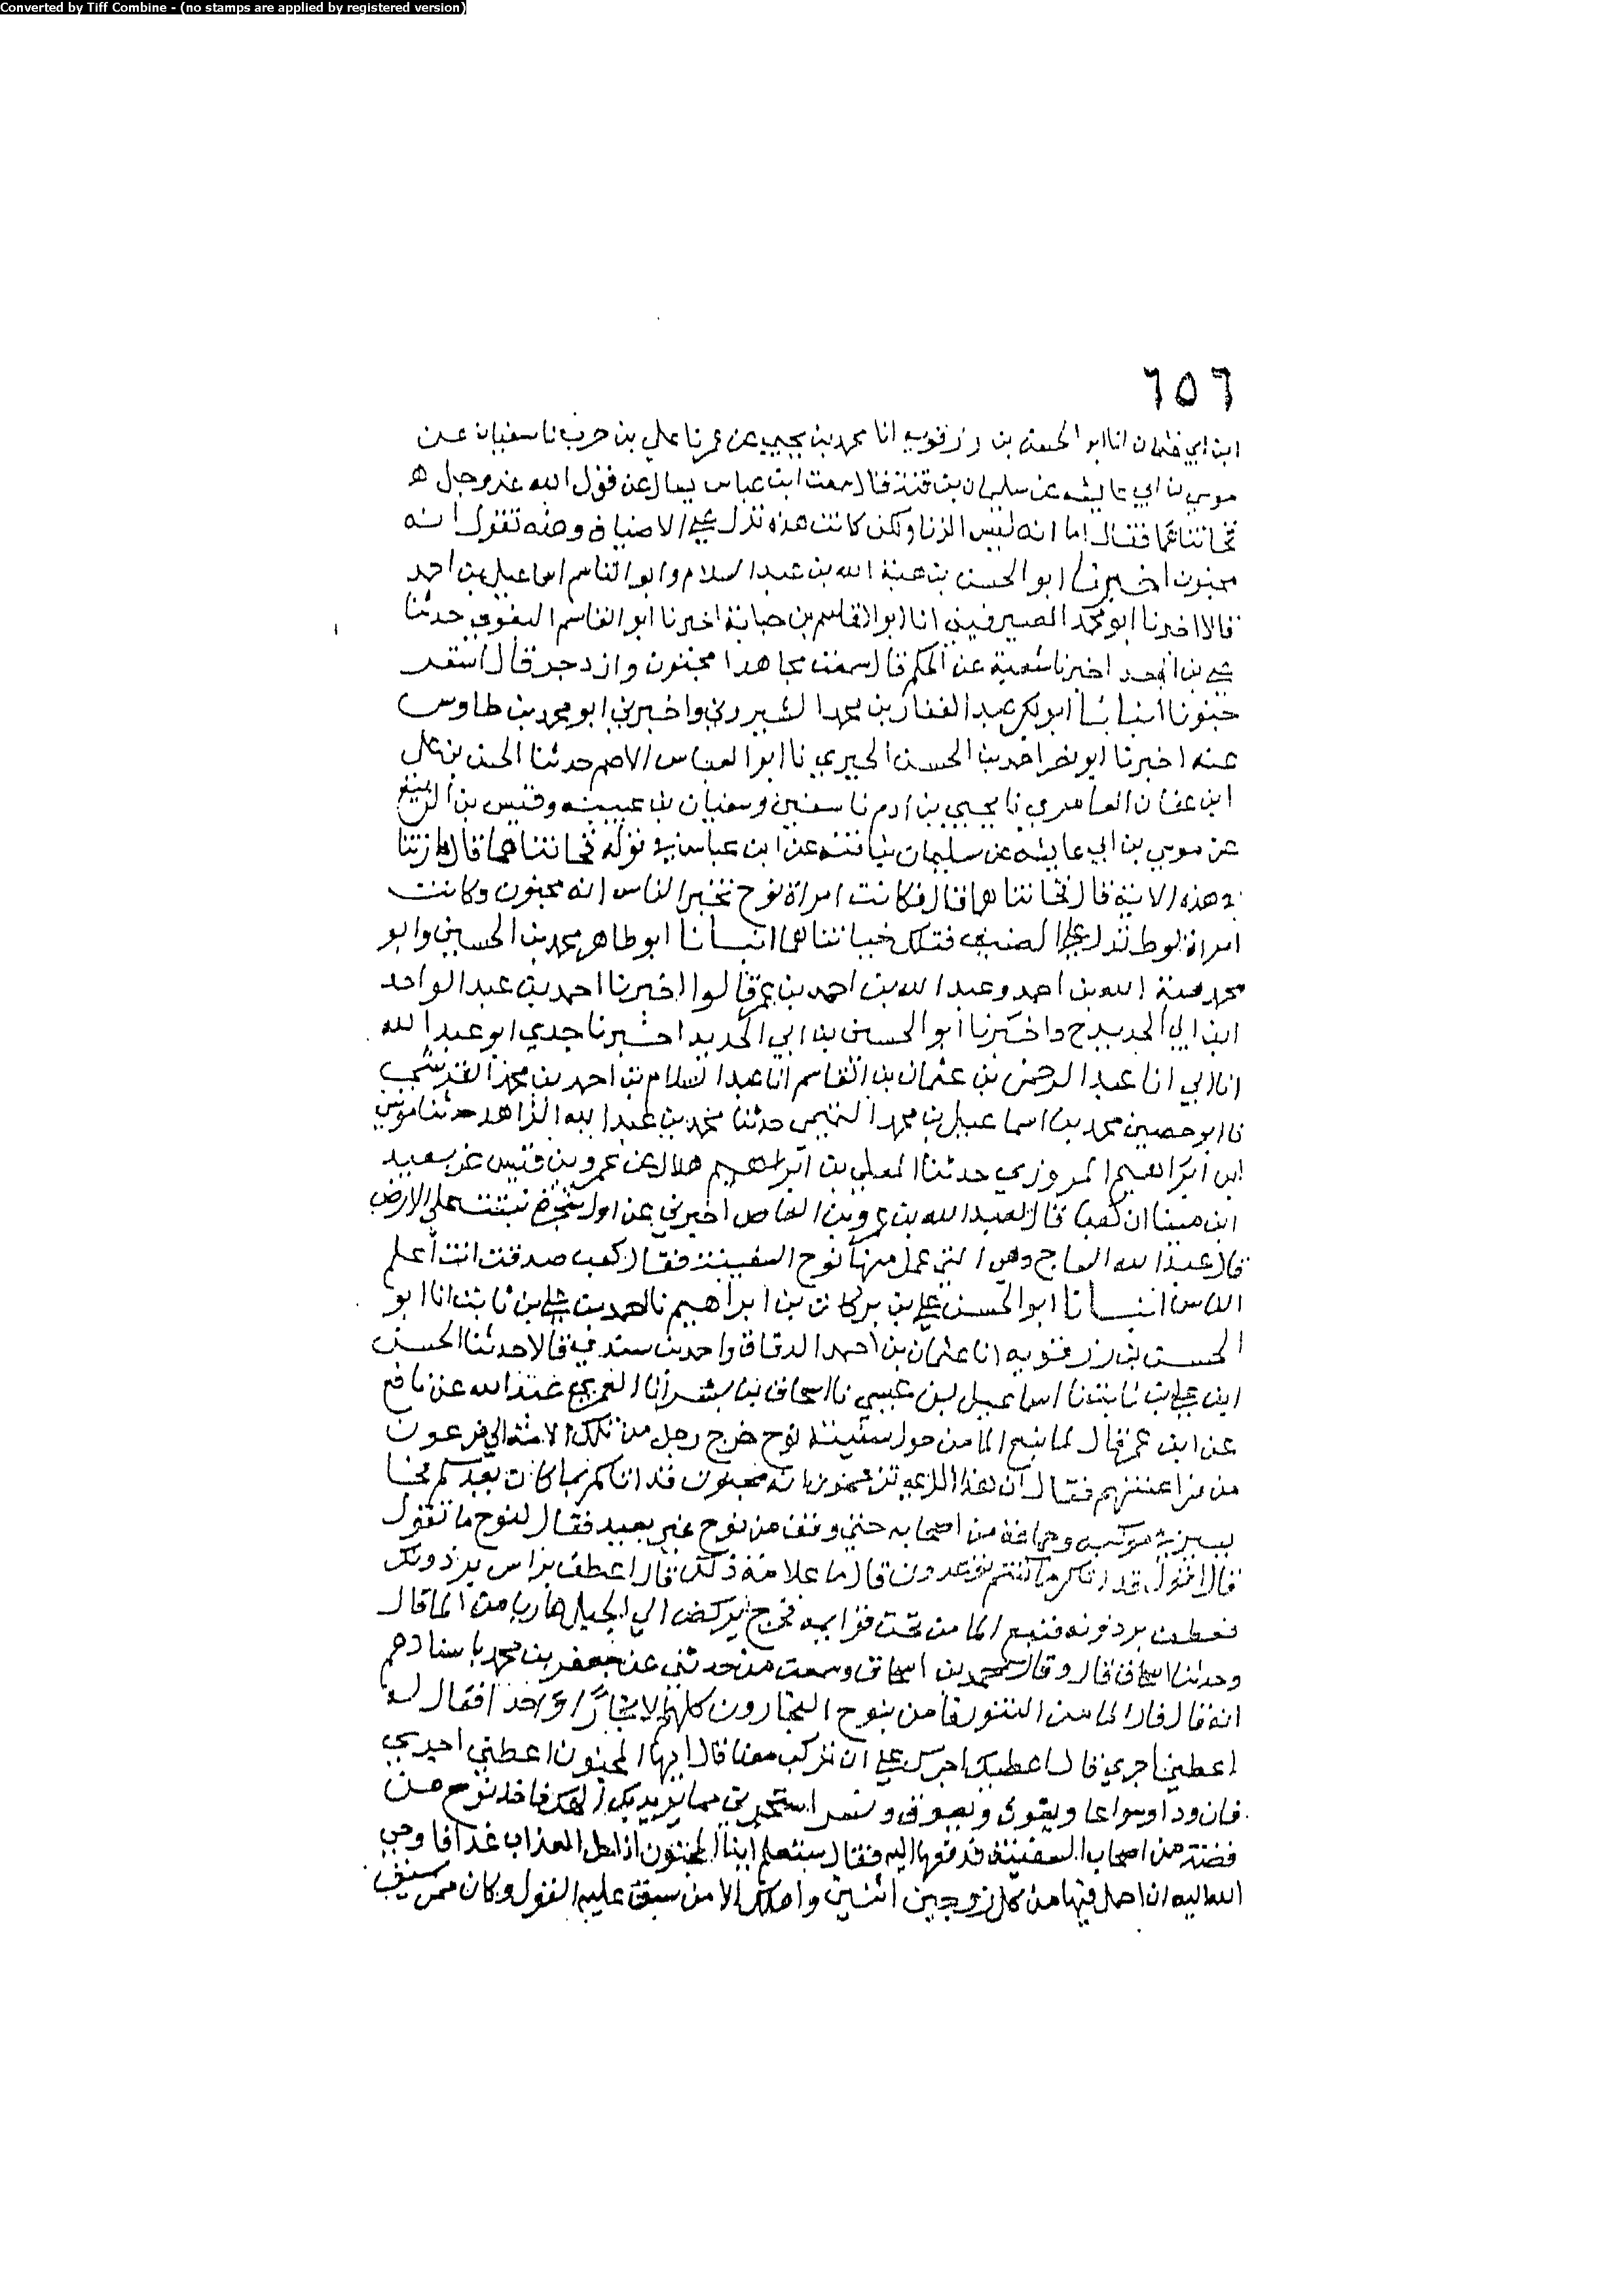 Converted by Tiff Combine - (no stamps are applied by registered version)
٦٥٦
ابن ابي عثمان انا ابو الحسن بن رزقويه انا محمد بن يحيى بن عمر نا علي بن حرب نا سفيان عن
موسى بن ابي عايشه عن سليمان بن قتة قال سمعت ابن عباس يسال عن قول الله عز وجل
فخانتاهما فقال اما انه ليس الزنا ولكن كانت هذه تدل على الاضياف وهذه تقول انه
مجنون اخبرنا ابو الحسن بن هبة الله بن عبد السلام وابو القاسم اسماعيل بن احمد
قالا اخبرنا ابو محمد الصيرفيني انا ابو القاسم بن حبابة اخبرنا ابو القاسم البغوي حدثنا
علي بن الجعد اخبرنا شعبة عن الحكم قال سمعت مجاهدا مجنون وازدجر قال استقر
جنونا انبانا ابو بكر عبد الغفار بن محمد الشيروني واخبرني ابو محمد بن طاوس
عنه اخبرنا ابو بكر احمد بن الحسن الحيري نا ابو العباس الاصم حدثنا الحسن بن علي
ابن عفان العامري نا يحيى بن ادم نا سفين وسفيان بن عيينه وقيس بن الربيع
عن موسى بن ابي عايشه عن سليمان بن قتة عن ابن عباس في قوله فخانتاهما قال ما زنتا
في هذه الاية قال فخانتاهما قال فكانت امراة نوح تخبر الناس انه مجنون وكانت
امراة لوط تدل على الضيف فتلك خيانتاهما انبانا ابو طاهر محمد بن الحسين وابو
محمد هبة الله بن احمد وعبد الله بن احمد بن عمر قالوا اخبرنا احمد بن عبد الواحد
ابن ابي الحديد ح واخبرنا ابو الحسين بن ابي الحديد اخبرنا جدي ابو عبد الله
انا ابي انا عبد الرحمن بن عثمان بن القاسم انا عبد السلام بن احمد بن محمد القرشي
نا ابو حصين محمد بن اسماعيل بن محمد التميمي حدثنا محمد بن عبد الله الزاهد حدثنا موسى
ابن ابراهيم المروزي حدثنا المعلى بن ابراهيم هلال عن عمرو بن قيس عن سعيد
ابن مينا ان كعبا قال لعبد الله بن عمرو بن العاص اخبرني عن اول شجرة نبتت على الارض
قال عبد الله الساج وهي التي عمل منها نوح السفينة فقال كعب صدقت انت اعلم
الناس انبانا ابو الحسن علي بن بركات بن ابراهيم نا احمد بن علي بن ثابت انا ابو
الحسن بن رزقويه انا عثمان بن احمد الدقاق واحمد بن سندي قالا حدثنا الحسن
ابن علي نا اسماعيل بن عيسى نا اسحاق بن بشر انا العمري عبد الله عن نافع
عن ابن عمر قال لما نبع الما من حول سفينة نوح خرج رجل من تلك الامة الى فرعون
من فراعنتهم فقال ان هذا الذي تزعمون انه مجنون قد اتاكم بما كان يعدكم فجا
يسير في موكبه وجماعة من اصحابه حتى وقف من نوح غير بعيد فقال لنوح ما تقول
قال اقول قد اتاكم ما كنتم توعدون قال ما علامة ذلك قال اعطف براس برذونك
فعطف برذونه فنبع الما من تحت قوايمه فخرج يركض الى الجبل هاربا من الما قال
وحدثنا اسحاق قال وقال محمد بن اسحاق وسمعت من حدثني عن جعفر بن محمد باسنادهم
انه قال فار الما من التنور فامن بنوح النجارون كلهم الا نجارا واحدا فقال له
اعطيني اجري قال اعطيك اجرك على ان تركب معنا قال ايها المجنون اعطني اجري
فان ودا وسواعا ويغوث ويعوق ونسرا ستجرني مما يريد بك الهك فاخذ نوح من
فضة من اصحاب السفينة فدفعها اليه فقال ستعلم اينا المجنون اذا حل العذاب غدا فاوحى
الله اليه ان احمل فيها من كل زوجين اثنين واهلك الا من سبق عليه القول وكان ممن سبق